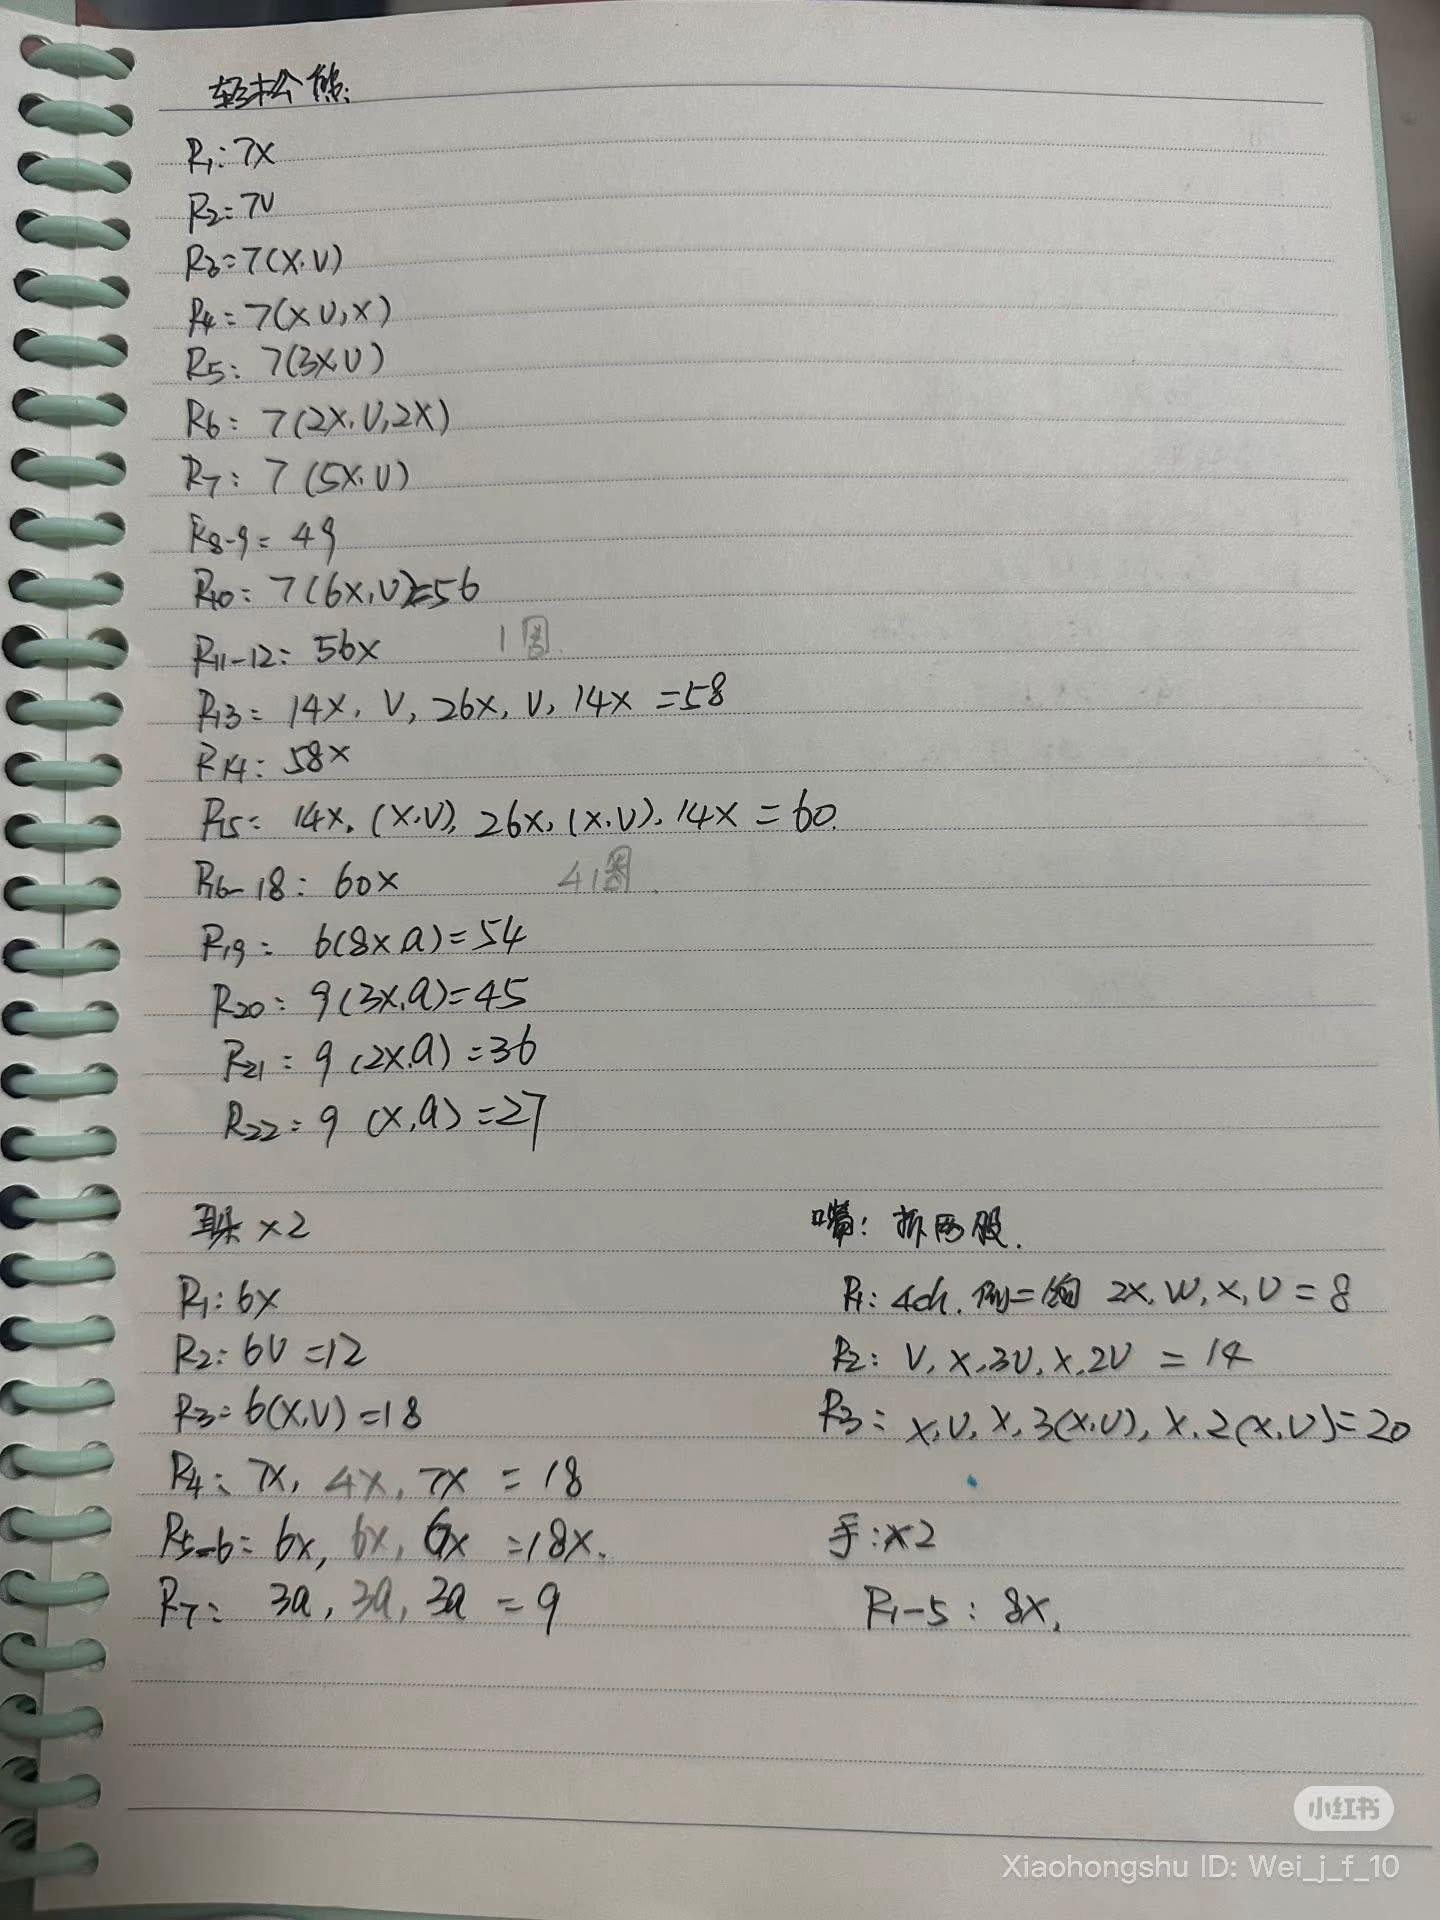 轻松熊:
R1: 7X
R2: 7V
R3: 7(X.V)
R4: 7(X V, X)
R5: 7(3X.V)
R6: 7(2X.V,2X)
R7: 7(5X.V)
R8-9: 49
R10: 7(6X,V)=56
R11-12: 56X 1圈.
R13: 14X. V, 26X, V, 14X =58
R14: 58X
R15: 14X. (X.V), 26X, (X.V). 14X = 60.
R16-18: 60X 41圈.
R19: 6(8X a)=54
R20: 9(3X.a)=45
R21: 9(2X.a)=36
R22: 9(X,a)=27
耳朵 X2
R1: 6X
R2: 6V =12
R3: 6(X,V)=18
R4: 7X, 4X, 7X = 18
R5-6: 6X, 6X, 6X =18X.
R7: 3a, 3a, 3a = 9
嘴: 拆两股.
R1: 4ch. 倒二钩 2X, W, X, V = 8
R2: V, X, 3V, X, 2V = 14
R3: X, V, X, 3(X.V), X. 2(X,V)=20
手: X2
R1-5: 8X,
小红书
Xiaohongshu ID: Wei_j_f_10